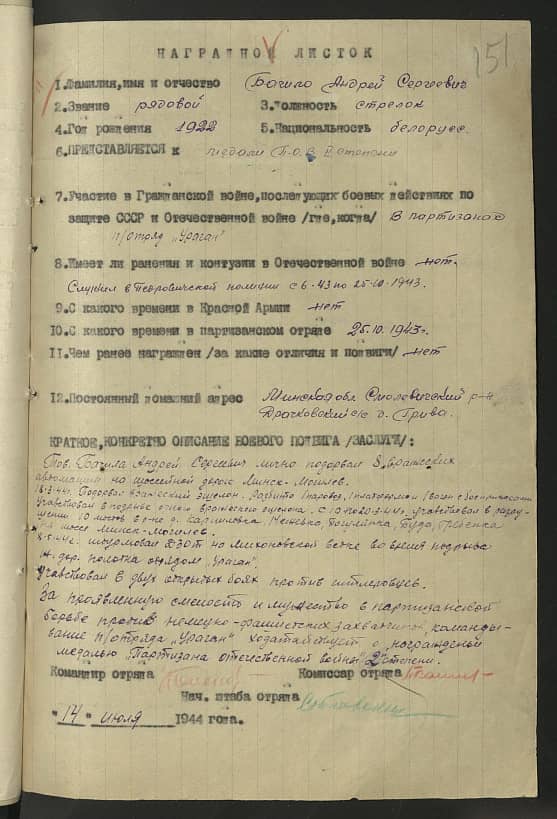 НАГРАДНОЙ ЛИСТОК
151
1. Фамилия, имя и отчество Богило Андрей Сергеевич
2. Звание рядовой 3. Должность стрелок
4. Год рождения 1922 5. Национальность белорусс.
6. ПРЕДСТАВЛЯЕТСЯ к медали П.О.В. II степени
7. Участие в Гражданской войне, последующих боевых действиях по
защите СССР и Отечественной войне /где, когда/ В партизанах
п/отряд „Ураган"
8. Имеет ли ранения и контузии в Отечественной войне нет.
Служил в полиции с 6-43 по 25-10-1943.
9. С какого времени в Красной Армии нет
10. С какого времени в партизанском отряде 25.10.1943г.
11. Чем ранее награжден /за какие отличия и подвиги/ нет
12. Постоянный домашний адрес Минская обл. Смолевичский р-н
Драчковский с/с д. Грива.
КРАТКОЕ, КОНКРЕТНО ОПИСАНИЕ БОЕВОГО ПОДВИГА /ЗАСЛУГИ/:
Тов. Богила Андрей Сергеевич лично подорвал 8 вражеских
автомашин на шоссейной дороге Минск-Могилев.
18-3-44г. Подорвал вражеский эшелон. Разбито 1 паровоз, 1
участвовал в подрыве одного вражеского эшелона. С 10 по 20-3-44г. участвовал в разру-
шении 10 мостов в р-не д. Карпиловка, Буда, Гребенка
на шоссе Минск-Могилев.
штурмовал ДЗОТ на во время подрыва
ж. дор. полотна отрядом „Ураган".
Участвовал в двух открытых боях против гитлеровцев.
За проявленную смелость и мужество в партизанской
борьбе против немецко-фашистских захватчиков, командо-
вание п/отряда „Ураган" ходатайствует о награждении
медалью „Партизана отечественной войны" 2й степени.
Командир отряда Комиссар отряда
Нач. штаба отряда
"14" июля 1944 года.